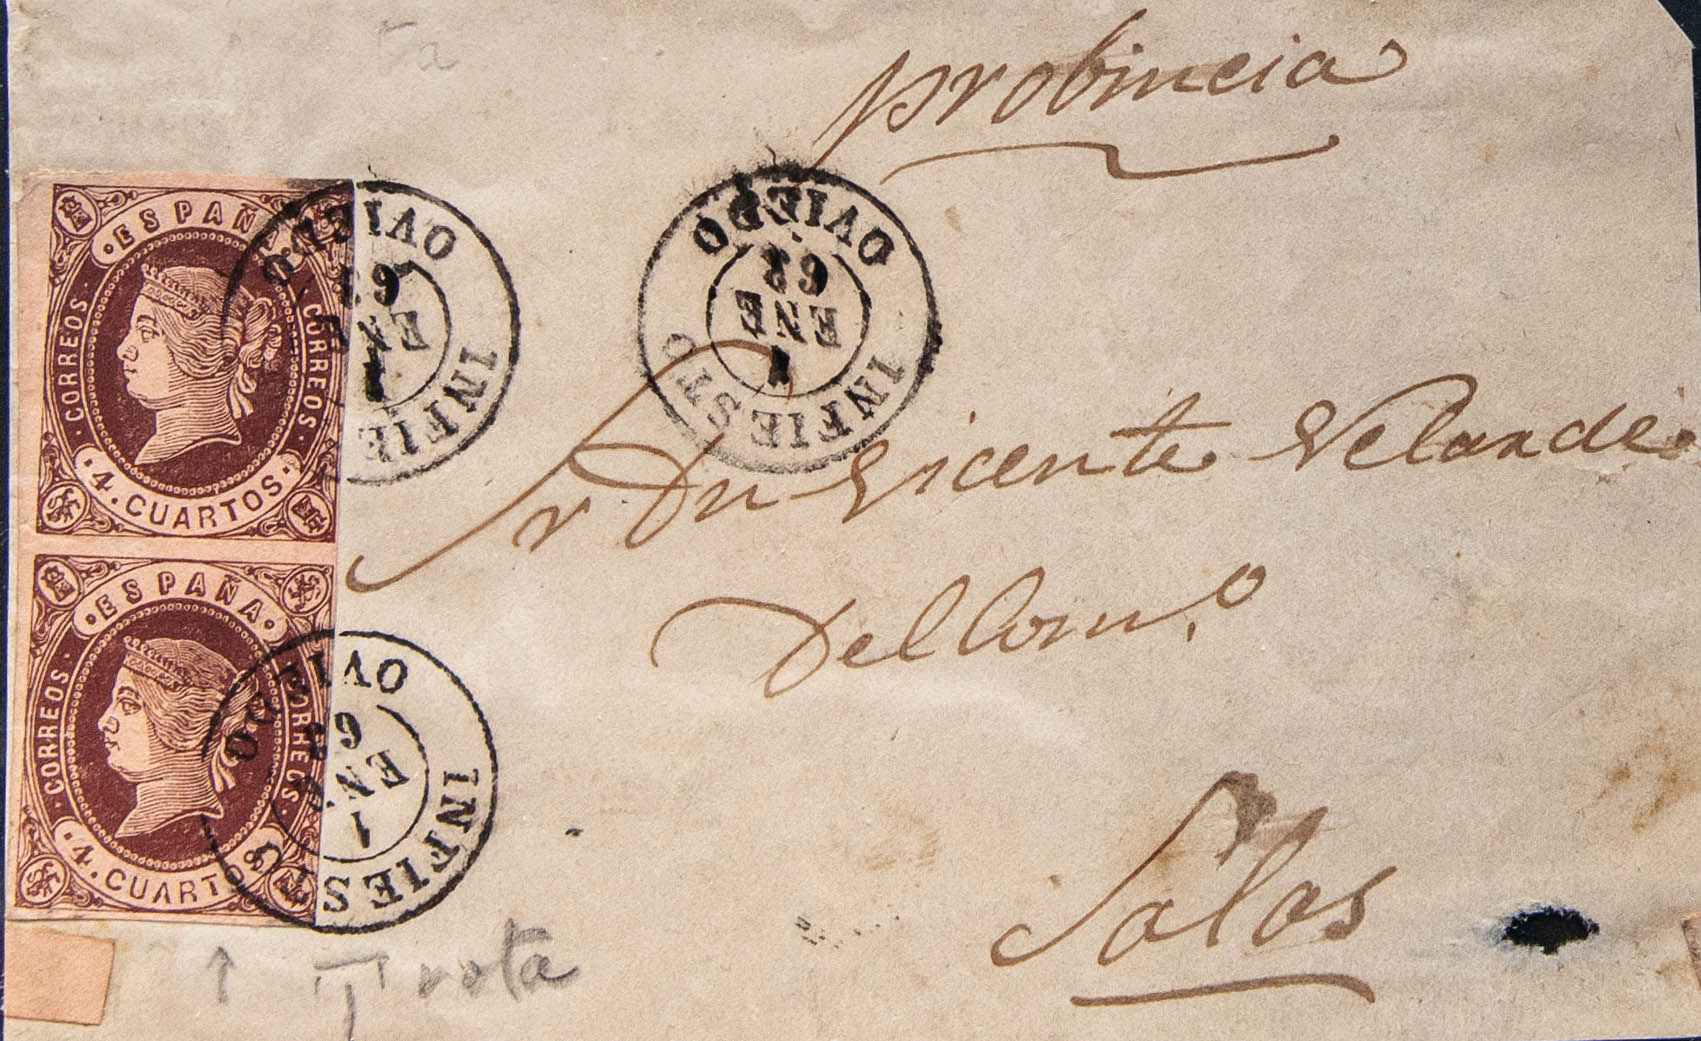 probincia
ESPAÑA
CORREOS
CORREOS
4. CUARTOS
ESPAÑA
CORREOS
CORREOS
4. CUARTOS
OVIEDO
63
ENE
1
INFIE
OVIEDO
63
ENE
1
INFIESTO
OVIEDO
63
ENE
1
INFIEST
Sr Dn Vicente Velarde
Del Com.º
Salas
T rota